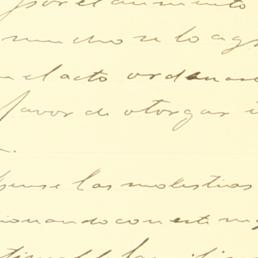 por el aumento
mucho se lo ag
n el acto ordenase
favor de otorgar
pense las molestias
ionando con esti m